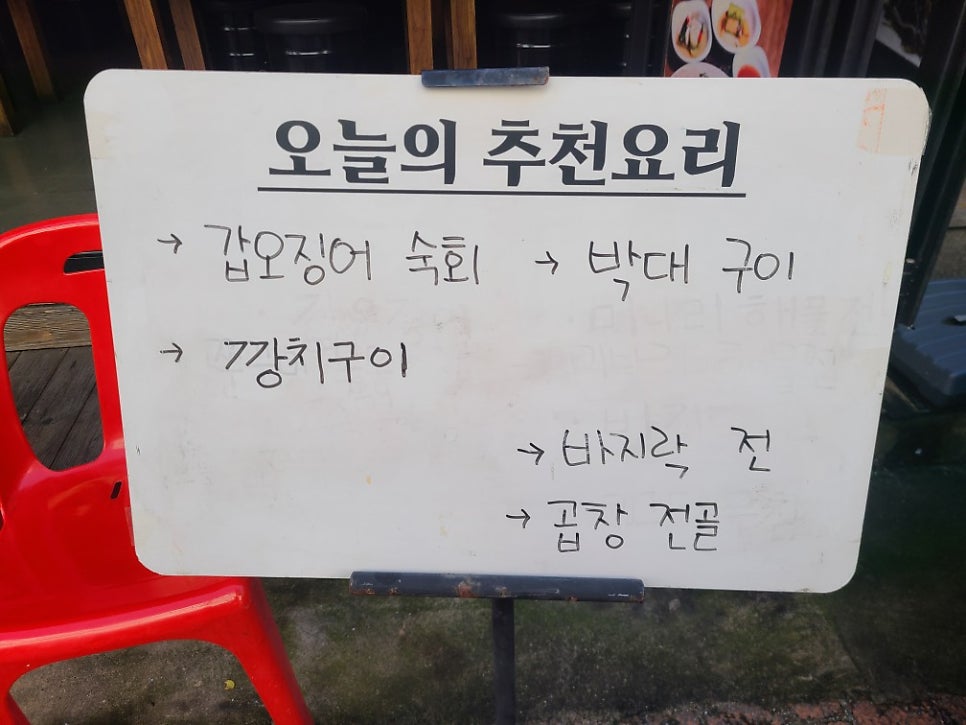 오늘의 추천요리
→ 갑오징어 숙회 → 박대 구이
→ 깡치구이
→ 바지락 전
→ 곱창 전골